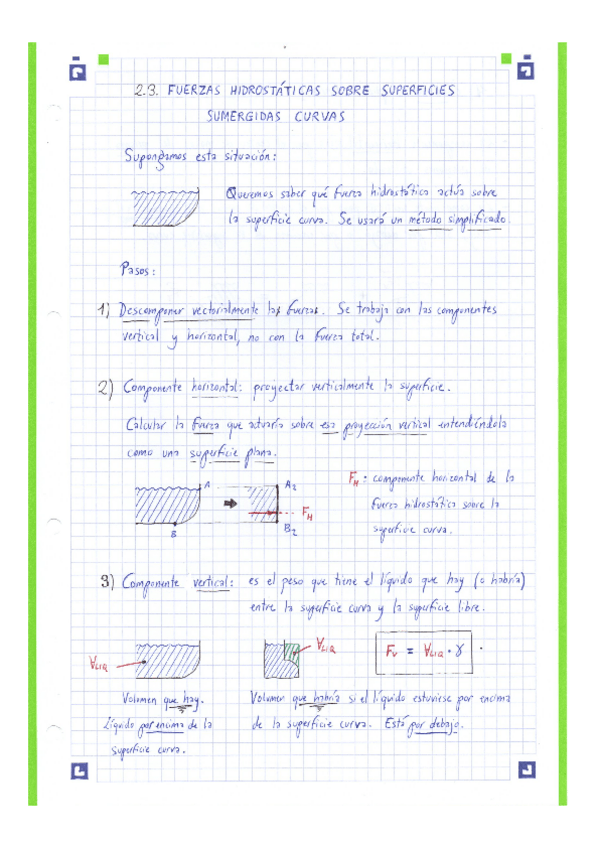 2.3. FUERZAS HIDROSTÁTICAS SOBRE SUPERFICIES
SUMERGIDAS CURVAS
Supongamos esta situación:
Queremos saber qué fuerza hidrostática actúa sobre
la superficie curva. Se usará un método simplificado.
Pasos:
1) Descomponer vectorialmente las fuerzas. Se trabaja con las componentes
vertical y horizontal, no con la fuerza total.
2) Componente horizontal: proyectar verticalmente la superficie.
Calcular la fuerza que actuaría sobre esa proyección vertical entendiéndola
como una superficie plana.
A
B
A₂
B₂
F_H
F_H: componente horizontal de la
fuerza hidrostática sobre la
superficie curva.
3) Componente vertical: es el peso que tiene el líquido que hay (o habría)
entre la superficie curva y la superficie libre.
∀LIQ
∀LIQ
F_V = ∀LIQ · γ
Volumen que hay.
Líquido por encima de la
superficie curva.
Volumen que habría si el líquido estuviese por encima
de la superficie curva. Está por debajo.